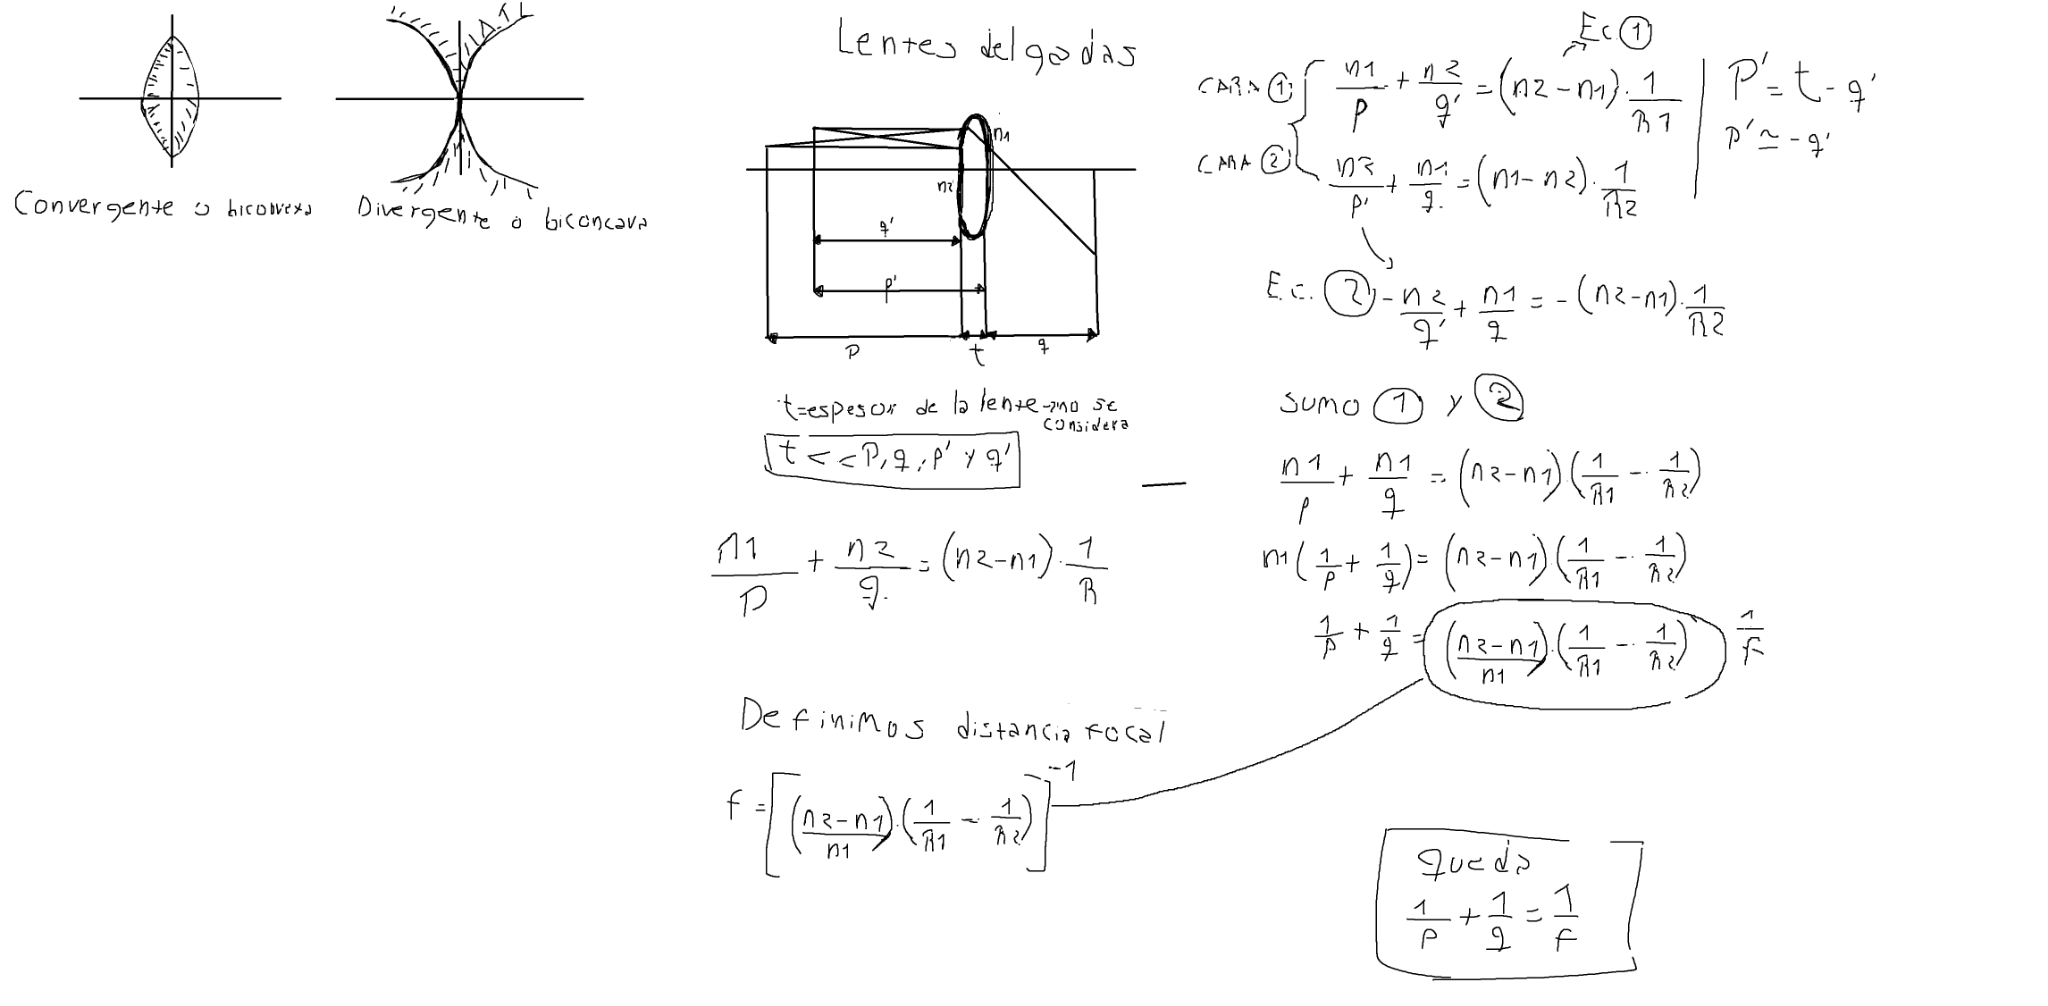 Convergente o biconvexa
Divergente o biconcava
Lentes delgadas
n1
n2
q'
p'
p
t
q
t=espesor de la lente→no se
considera
t<<P,q,p' y q'
n1/p + n2/q = (n2-n1).1/R
Definimos distancia focal
f = [(n2-n1)/n1.(1/R1 - 1/R2)]^-1
Ec. ①
CARA ① n1/p + n2/q' = (n2-n1).1/R1
P' = t - q'
p' ≃ -q'
CARA ② n2/p' + n1/q = (n1-n2).1/R2
Ec. ② -n2/q' + n1/q = -(n2-n1).1/R2
SUMO ① y ②
n1/p + n1/q = (n2-n1)(1/R1 - 1/R2)
n1(1/p + 1/q) = (n2-n1)(1/R1 - 1/R2)
1/p + 1/q = (n2-n1)/n1.(1/R1 - 1/R2) 1/f
queda
1/p + 1/q = 1/f